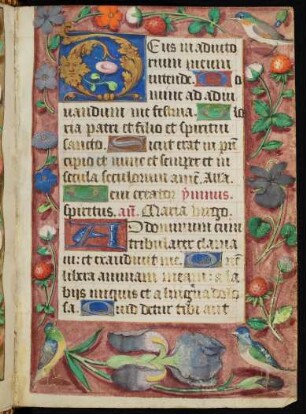 Deus in adiuto
rium meum
intende. Do
mine ad adiu
uandum me festina. Glo
ria patri et filio et spiritui
sancto. Sicut erat in prī
cipio et nunc et semper et in
secula seculorum amē. Alla.
Veni creator ymnus.
spiritus. añ. Maria uirgo.
Ad dominum cum
tribularer clama
ui: et exaudiuit me. Dñe
libera animam meam: a la
bijs iniquis et a lingua dolo
sa. Quid detur tibi aut